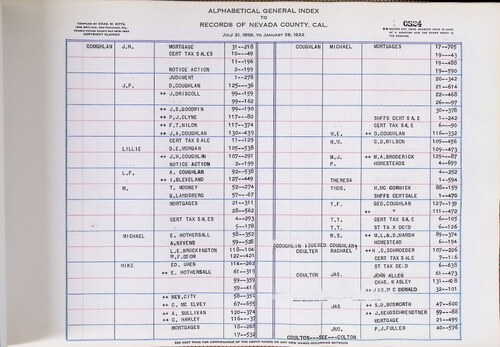 ALPHABETICAL GENERAL INDEX
TO
RECORDS OF NEVADA COUNTY, CAL.
JULY 21, 1856, TO JANUARY 28, 1922
COMPILED BY CHAS. W. KITTS,
COPYRIGHT CLAIMED
0524
COUGHLAN J.H. MORTGAGE 31--218
CERT TAX SALES 10--49
11--196
NOTICE ACTION 2--199
JUDGMENT 1--278
J.F. D.COUGHLAN 125--36
++ J.DRISCOLL 99--159
99--162
++ J.S.GOODWIN 99--190
++ P.J.CLYNE 117--80
++ F.T.NILON 117--374
++ J.A.COUGHLAN 130--439
CERT TAX SALE 11--129
LILLIE D.E.MORGAN 105--538
++ J.H.COUGHLAN 107--291
NOTICE ACTION 2--199
L.F. A. COUGHLAN 92--538
++ I.CLEVELAND 127--449
M. T. MOONEY 52--274
G.LANDSBERG 57--467
MORTGAGES 21--311
28--562
CERT TAX SALES 4--293
5--178
MICHAEL E. HOTHERSALL 58--352
A.NIVENS 59--528
L.E.BROCKINGTON 118--104
M.F.ODOM 122--421
MIKE ED. UREN 114--262
++ E. HOTHERSALL 61--319
59--359
59--415
++ NEV.CITY 58--350
++ C. MC ELVEY 67--655
++ A. SULLIVAN 120--374
++ C. HARLEY 116--37
MORTGAGES 18--268
17--532
COUGHLAN MICHAEL MORTGAGES 17--705
19--43
19--488
19--590
20--342
21--614
22--468
26--97
30--378
SHFFS CERT SALE 1--242
CERT TAX SALE 6--90
M.E. ++ D.COUGHLAN 116--332
M.M. C.D.WILSON 109--456
109--473
M.J. ++ M.A.BRODERICK 125--87
P. HOMESTEADS 4--695
4--252
THERESA 1--594
THOS. H.MC CORMICK 88--159
SHFFS CERTSALE 1--470
T.F. GEO.COUGHLAN 127--139
++ " 111--472
T.T. CERT TAX SALE 6--105
T.T. ST TAX DEED 6--126
M.S. ++ M.L.&D.MARSH 89--374
HOMESTEAD 6--194
COUGHLIN (INDEXED COUGHLAN)
COULTER RACHAEL ++ H.C.SCHROEDER 107--226
CERT TAX SALE 7--116
ST TAX DEED 6--638
COULTON JAS. JOHN ALLEN 61--473
CHAS. BAGLEY 131--408
++ JAS.MC DONALD 32--101
JAS ++ S.D.BOSWORTH 47--600
++ J.NEUDSCHRENDTNER 59--88
MORTGAGE 21--499
JNO. P.J.FULLER 40--576
COULTON---SEE---COLTON
SEE NEXT PAGE FOR CONTINUANCE OF THE ABOVE NAMES OR ANY NEW NAMES OCCURRING BETWEEN